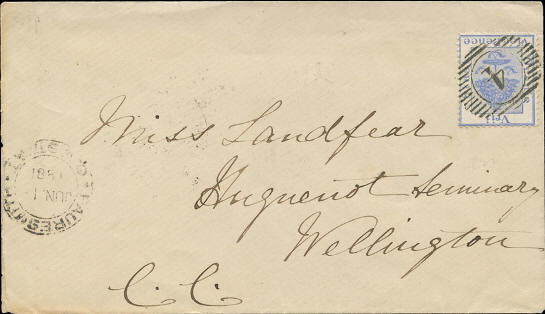 Miss Landfear
Huguenot Seminary
Wellington
C. C.
4
FAURESMITH
JUN 1